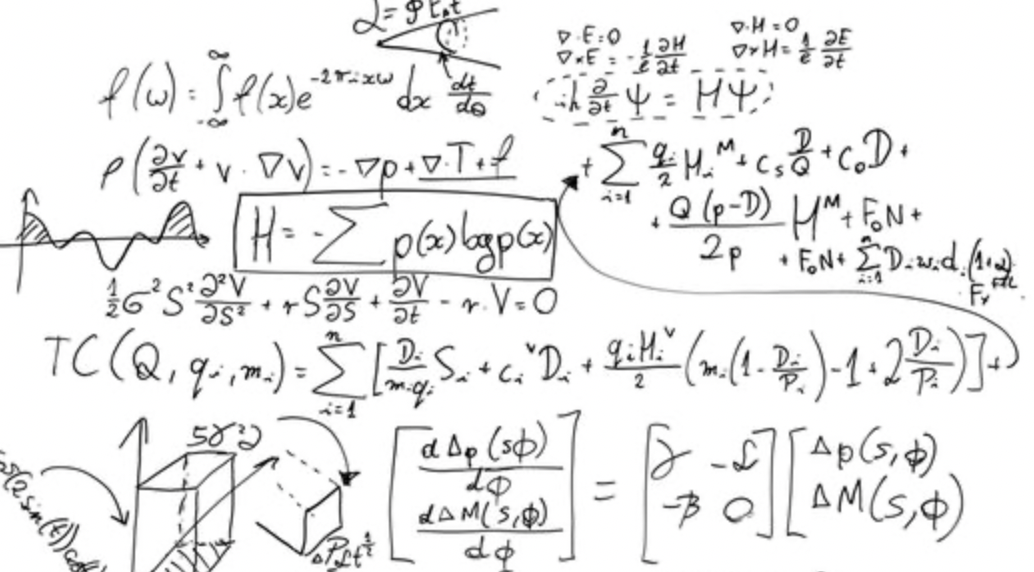 ∇·E=0 ∇·H=0
∇×E = -1/c ∂H/∂t ∇×H = 1/c ∂E/∂t
f(ω) = ∫_{-∞}^{∞} f(x)e^{-2πixω} dx dt/dθ
iħ ∂/∂t Ψ = HΨ
ρ(∂v/∂t + v · ∇v) = -∇p + ∇·T + f
+ ∑_{i=1}^{n} q_i/2 H_i^M + c_s D/Q + c_o D +
+ Q(p-D)/2p H^M + F_oN +
+ F_oN + ∑_{i=1}^{n} D_i w_i d_i
H = -∑ p(x) log p(x)
1/2 σ² S² ∂²V/∂S² + rS ∂V/∂S + ∂V/∂t - r·V = 0
TC(Q, q_i, m_i) = ∑_{i=1}^{n} [D_i/(m_i q_i) S_i + c_i^v D_i + q_i H_i^v/2 (m_i(1 - D_i/P_i) - 1 + 2 D_i/P_i)] +
[dΔp(sϕ)/dϕ dΔM(s,ϕ)/dϕ] = [γ -£ -β 0] [Δp(s,ϕ) ΔM(s,ϕ)]